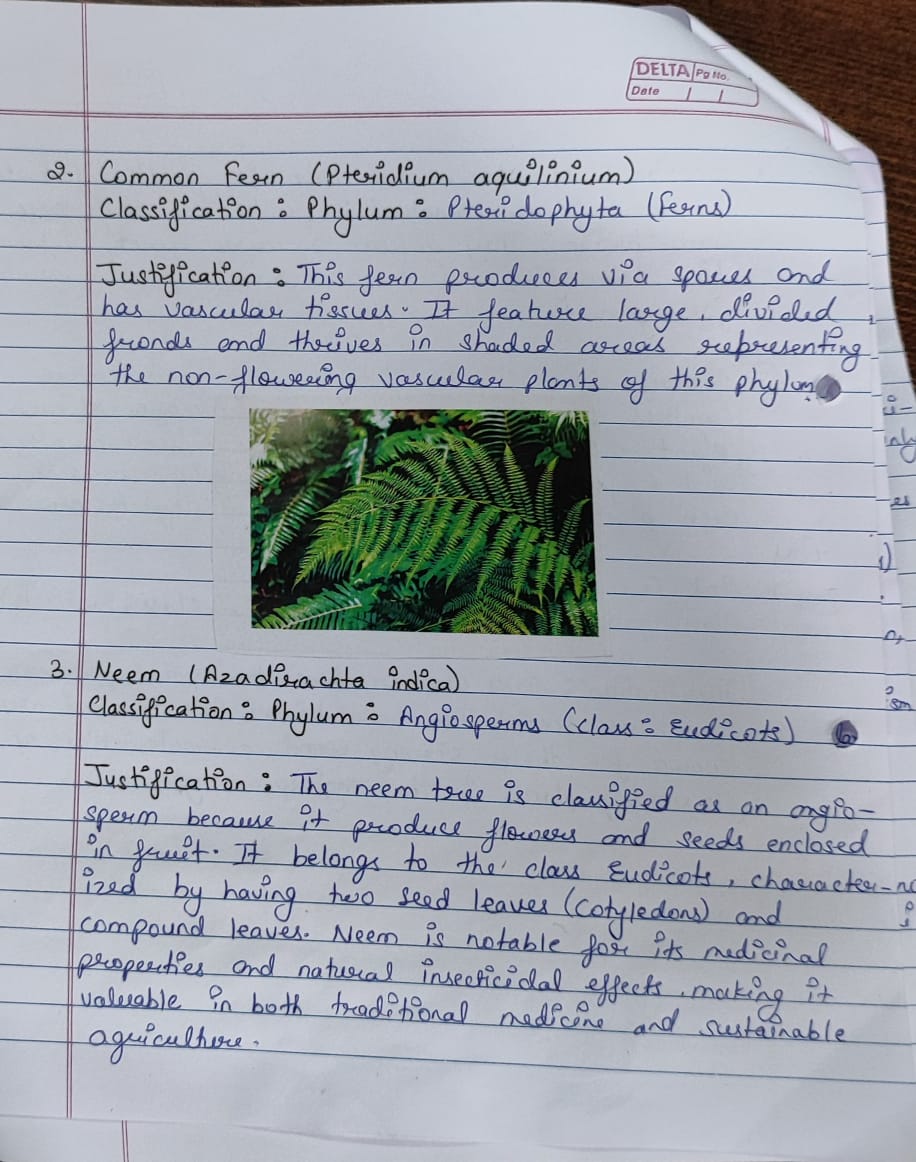 DELTA Pg No.
Date / /
2. Common Fern (Pteridium aquilinium)
Classification : Phylum : Pteridophyta (ferns)
Justification : This fern produces via spores and
has vascular tissues. It feature large, divided
fronds and thrives in shaded areas representing
the non-flowering vascular plants of this phylum.
3. Neem (Azadirachta indica)
Classification : Phylum : Angiosperms (class : Eudicots)
Justification : The neem tree is classified as an angio-
sperm because it produce flowers and seeds enclosed
in fruit. It belongs to the class Eudicots, character-
ized by having two seed leaves (cotyledons) and
compound leaves. Neem is notable for its medicinal
properties and natural insecticidal effects, making it
valuable in both traditional medicine and sustainable
agriculture.